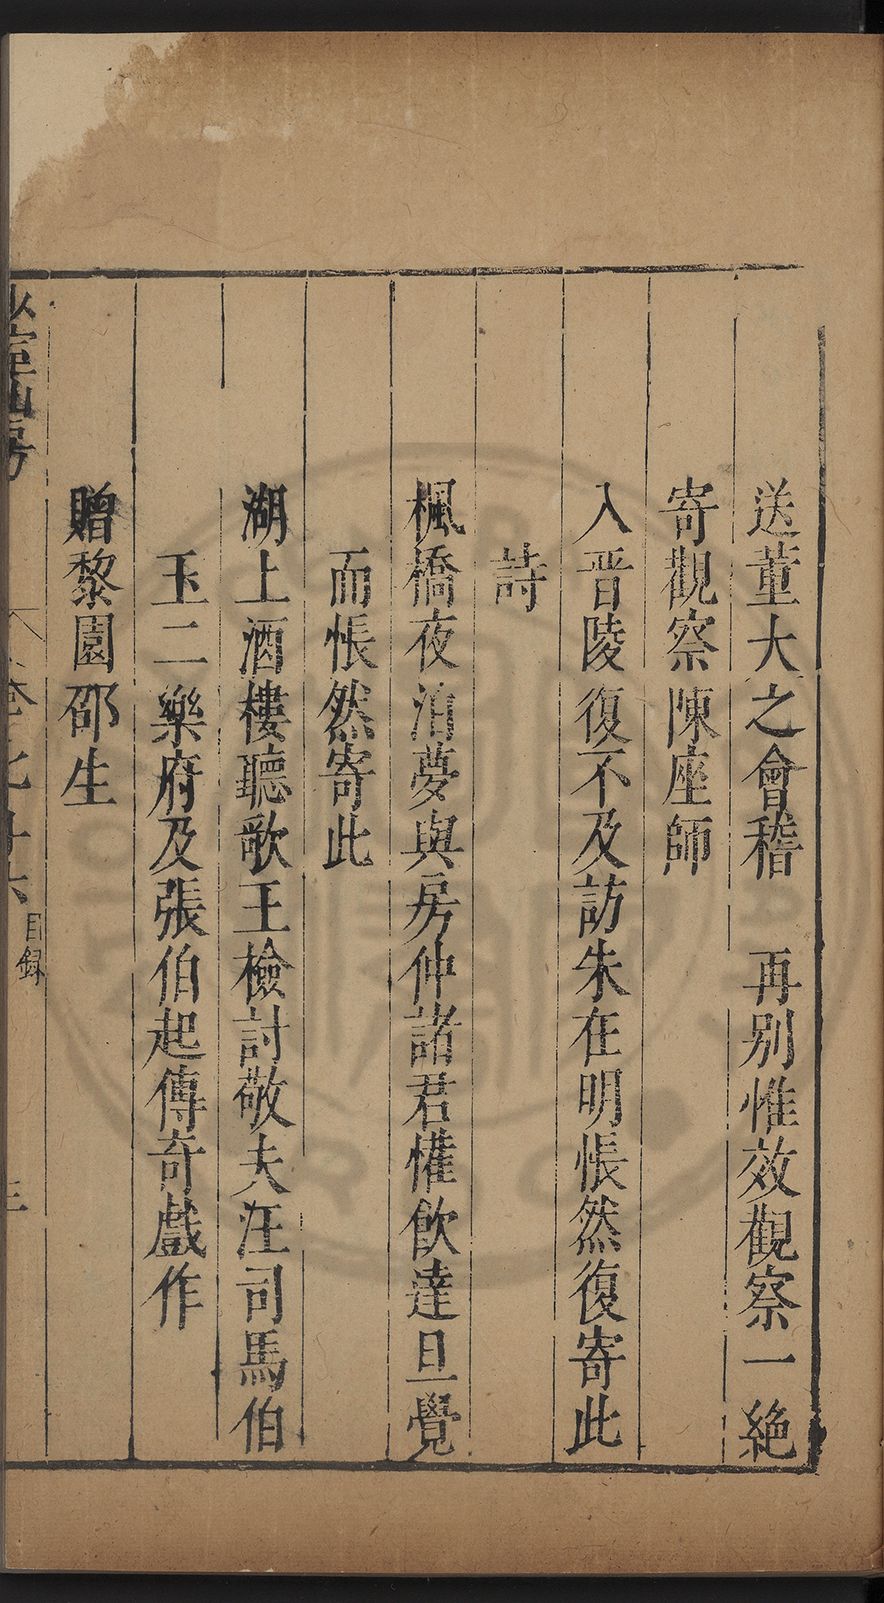 送董大之會稽　再别惟效觀察一絶
寄觀察陳座師
入晋陵復不及訪朱在明悵然復寄此
詩
楓橋夜泊夢與房仲諸君懽飲達旦覺
而悵然寄此
湖上酒樓聽歌王檢討敬夫汪司馬伯
玉二樂府及張伯起傳奇戲作
贈黎園邵生
少室山房
卷之廿六
目録
三